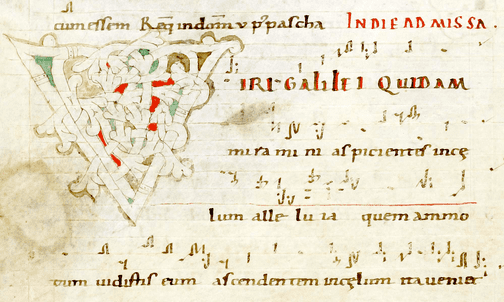 cum essem Req in dom v p pascha IN DIE AD MISSA.
VIRI GALILEI QUIDAM
mira mi ni aspicientes in cę
lum alle lu ia quem ammo
dum uidistis eum ascendentem in cęlum ita ueniet